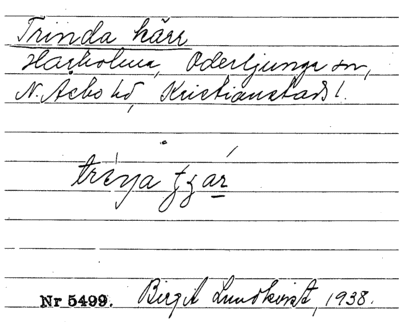 Trinda kärr
Harholma, Oderljunga sn,
N. Åsbo hd, Kristianstads l.
Nr 5499. Birgit Lundkvist, 1938.